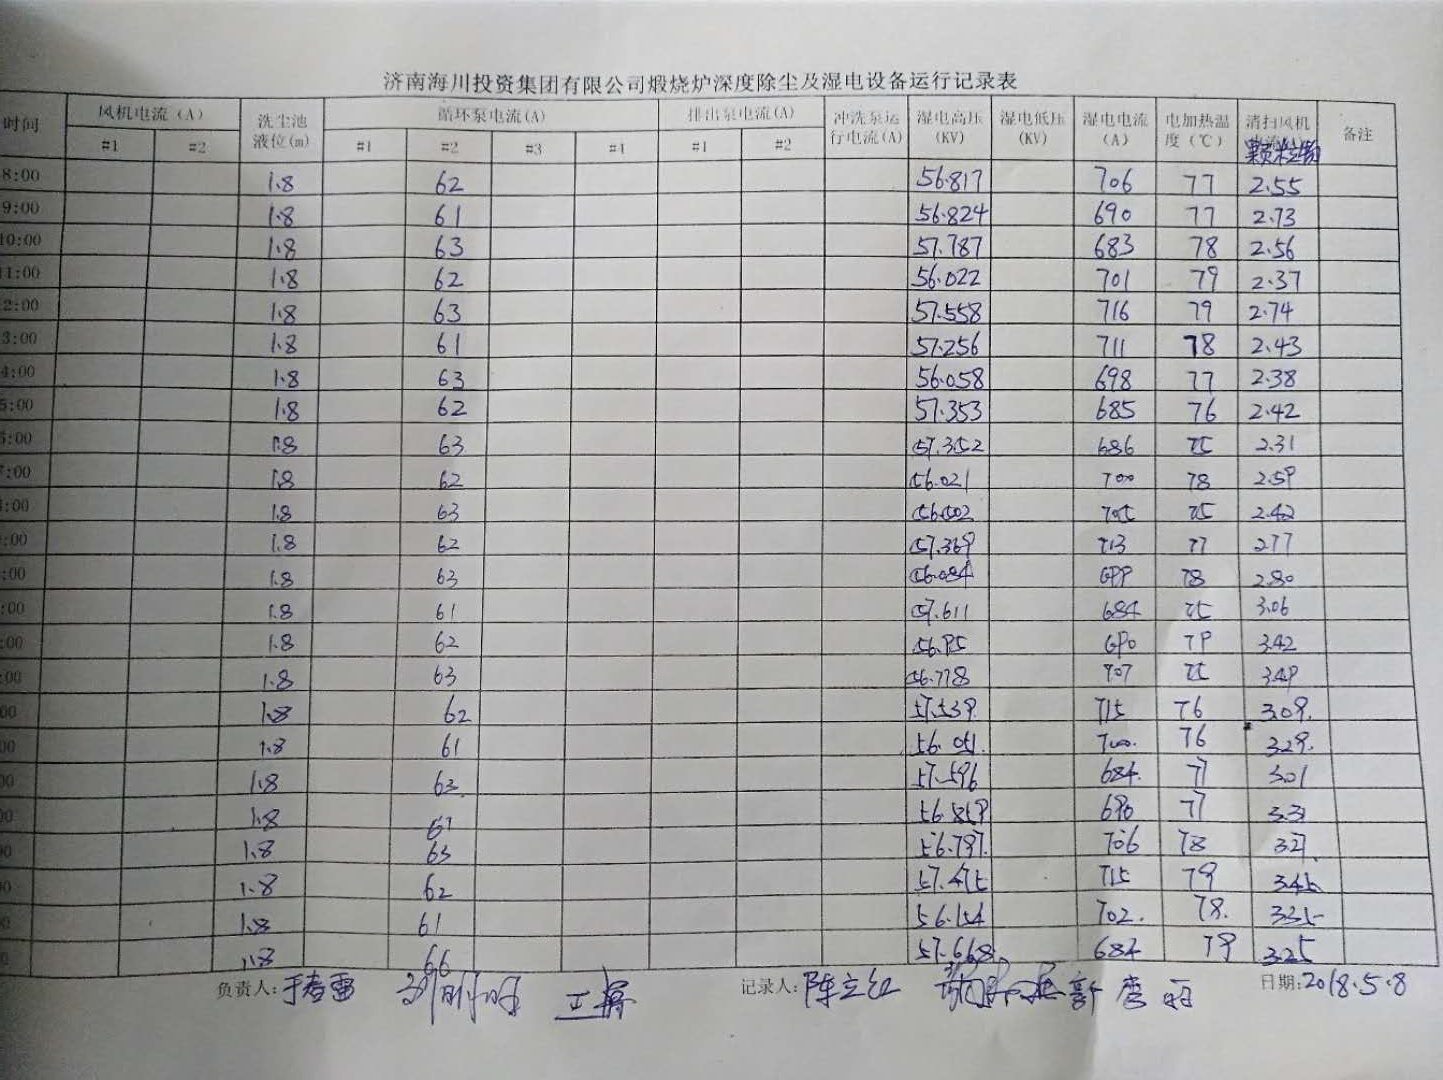 济南海川投资集团有限公司煅烧炉深度除尘及湿电设备运行记录表
时间 风机电流(A) 洗尘池液位(m) 循环泵电流(A) 排出泵电流(A) 冲洗泵运行电流(A) 湿电高压(KV) 湿电低压(KV) 湿电电流(A) 电加热温度(℃) 清扫风机 颗粒物 备注
#1 #2 #1 #2 #3 #4 #1 #2
8:00 1.8 62 56.817 706 77 2.55
9:00 1.8 61 56.824 690 77 2.73
10:00 1.8 63 57.787 683 78 2.56
1:00 1.8 62 56.022 701 79 2.37
2:00 1.8 63 57.558 716 79 2.74
3:00 1.8 61 57.256 711 78 2.43
4:00 1.8 63 56.058 698 77 2.38
5:00 1.8 62 57.353 685 76 2.42
6:00 1.8 63 57.352 686 75 2.31
7:00 1.8 62 56.021 700 78 2.59
:00 1.8 63 56.502 705 75 2.42
:00 1.8 62 57.369 713 77 2.77
:00 1.8 63 56.084 699 78 2.80
:00 1.8 61 57.611 684 75 3.06
:00 1.8 62 56.95 690 79 3.42
:00 1.8 63 56.778 707 75 3.49
00 1.8 62 57.539 715 76 3.09
00 1.8 61 56.051 700 76 3.29
00 1.8 63 57.596 684 77 3.01
00 1.8 56.859 690 77
00 1.8 63 56.797 706 78
0 1.8 62 57.475 715 79 3.45
0 1.8 61 56.154 702 78 3.35
0 1.8 66 57.668 684 79 3.25
负责人: 记录人:陈立红 日期:2018.5.8